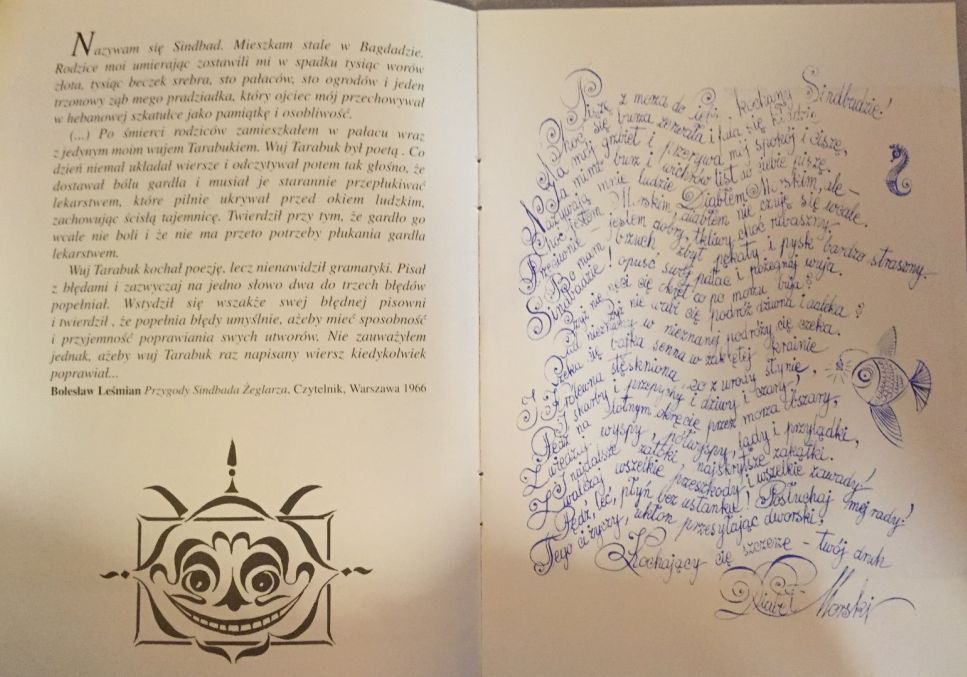 Nazywam się Sindbad. Mieszkam stale w Bagdadzie.
Rodzice moi umierając zostawili mi w spadku tysiąc worów
złota, tysiąc beczek srebra, sto pałaców, sto ogrodów i jeden
trzonowy ząb mego pradziadka, który ojciec mój przechowywał
w hebanowej szkatułce jako pamiątkę i osobliwość.
(...) Po śmierci rodziców zamieszkałem w pałacu wraz
z jedynym moim wujem Tarabukiem. Wuj Tarabuk był poetą . Co
dzień niemal układał wiersze i odczytywał potem tak głośno, że
dostawał bólu gardła i musiał je starannie przepłukiwać
lekarstwem, które pilnie ukrywał przed okiem ludzkim,
zachowując ścisłą tajemnicę. Twierdził przy tym, że gardło go
wcale nie boli i że nie ma przeto potrzeby płukania gardła
lekarstwem.
Wuj Tarabuk kochał poezję, lecz nienawidził gramatyki. Pisał
z błędami i zazwyczaj na jedno słowo dwa do trzech błędów
popełniał. Wstydził się wszakże swej błędnej pisowni
i twierdził , że popełnia błędy umyślnie, ażeby mieć sposobność
i przyjemność poprawiania swych utworów. Nie zauważyłem
jednak, ażeby wuj Tarabuk raz napisany wiersz kiedykolwiek
poprawiał...
Bolesław Leśmian Przygody Sindbada Żeglarza, Czytelnik, Warszawa 1966
Piszę z morza do ciebie, kochany Sindbadzie!
Choć się burza zerwała i kładzie
Na mój grzbiet i przerywa mój spokój i ciszę,
Ja mimo burz i wichrów list do ciebie piszę.
Nazywają mnie ludzie Diabłem Morskim, ale –
Choć jestem Morskim, diabłem nie czuję się wcale.
Przeciwnie – jestem dobry, tkliwy, choć rubaszny,
Bo mam brzuch zbyt pękaty i pysk bardzo straszny.
Sindbadzie! opuść swój pałac i pożegnaj wuja.
Czyż nie nęci cię okręt, co po morzu buja?
Czyż nie wabi cię podróż dziwna i daleka?
Cud nieznany w nieznanej podróży cię czeka.
Czeka cię bajka senna w zaklętej krainie
I królewna stęskniona, co z urody słynie,
I skarby i przepychy i dziwy i czary!
Pędź na lotnym okręcie przez morza obszary,
Zwiedzaj wyspy, półwyspy, lądy i przylądki,
I najdalsze zatoki najskrytsze zakątki.
Zwalczaj wszelkie przeszkody i wszelkie zawady!
Pędź, leć, płyń bez ustanku! Posłuchaj mej rady!
Tego ci życzy, ukłon przesyłając dworski,
Kochający cię szczerze – twój druh
Diabeł Morski